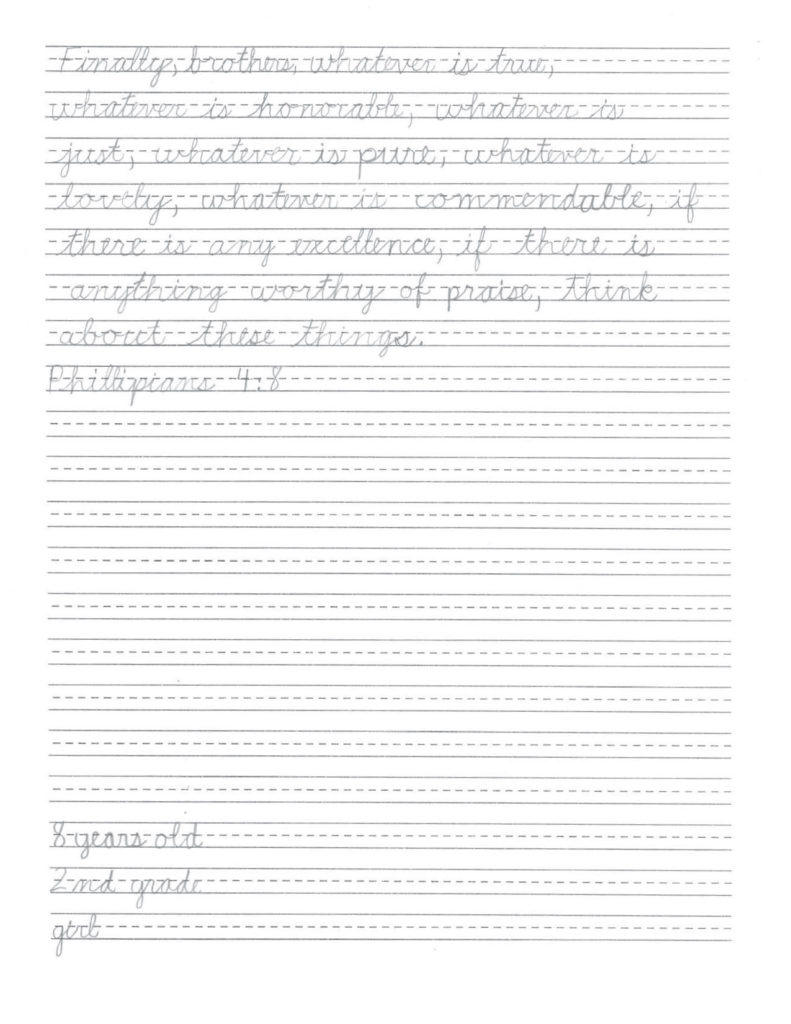 Finally, brothers, whatever is true,
whatever is honorable, whatever is
just, whatever is pure, whatever is
lovely, whatever is commendable, if
there is any excellence, if there is
anything worthy of praise, think
about these things.
Phillipians 4:8
8 years old
2nd grade
girl